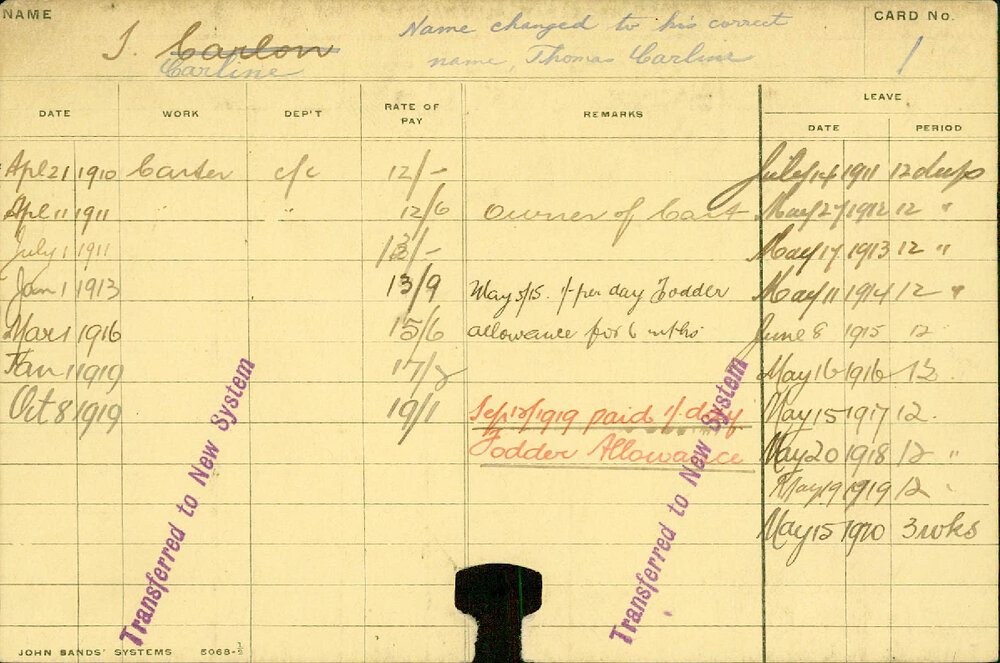 NAME
T. Carlon
Carline
Name changed to his correct
name, Thomas Carline
CARD No.
1
DATE WORK DEP'T RATE OF PAY REMARKS LEAVE
DATE PERIOD
Apl 21 1910 Carter c/c 12/- July 14 1911 12 days
Apl 11 1911 " 12/6 Owner of Cart May 27 1912 12 "
July 1 1911 13/- May 17 1913 12 "
Jan 1 1913 13/9 May 5/15. 1/- per day Fodder May 11 1914 12 "
Mar 1 1916 15/6 allowance for 6 mths June 8 1915 12
Jan 1 1919 17/ May 16 1916 12
Oct 8 1919 19/1 Sep 12/1919 paid 1/ day May 15 1917 12
Fodder Allowance May 20 1918 12 "
May 19 1919 12 "
May 15 1920 3 wks
Transferred to New System
Transferred to New System
JOHN SANDS' SYSTEMS 5068-